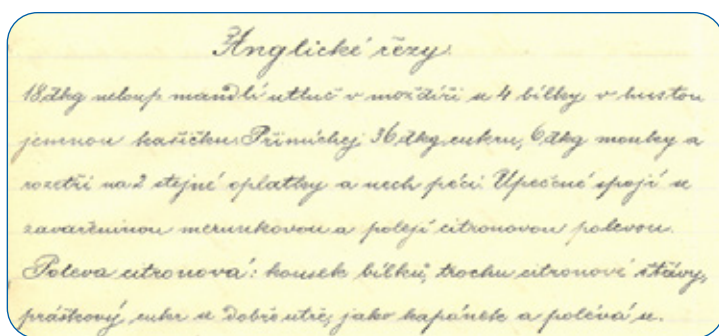 Anglické řezy.
18 dkg neloup. mandlí utluč v moždíři s 4 bílky v hustou
jemnou kašičku. Přimíchej 36 dkg cukru, 6 dkg mouky a
rozetři na 2 stejné oplatky a nech péci. Upečené spojí se
zavařeninou meruňkovou a polejí citronovou polevou.
Poleva citronová: kousek bílků, trochu citronové šťávy,
práškový cukr se dobře utře, jako kapánek a polévá se.